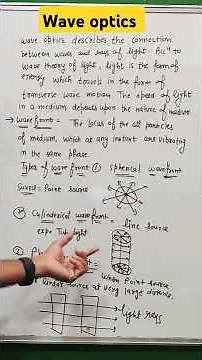 Wave optics
wave optics describes the connection
between waves and rays of light. Acc" to
wave theory of light, light is the form of
energy which travels in the form of
transverse wave motion. The speed of light
in a medium depends upon the nature of medium.
→ wavefront = The locus of all particles
of medium, which at any instant are vibrating
in the same phase.
Types of wavefront ① spherical wavefront
Source = Point source
② Cylinderical wavefront = line source
exp: Tube light
When Point source
or linear source at very large distance.
light rays